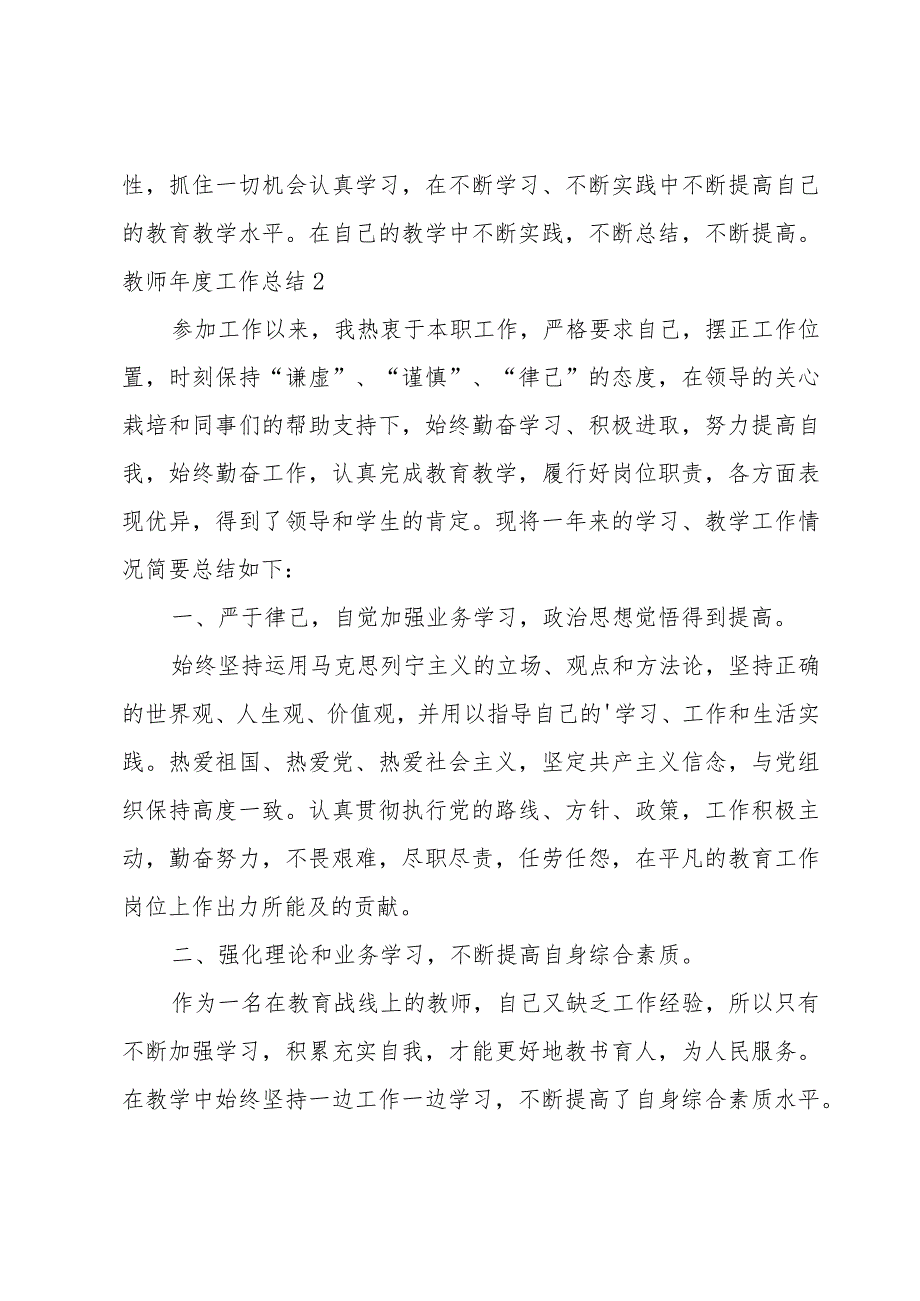 性，抓住一切机会认真学习，在不断学习、不断实践中不断提高自己
的教育教学水平。在自己的教学中不断实践，不断总结，不断提高。
教师年度工作总结2
参加工作以来，我热衷于本职工作，严格要求自己，摆正工作位
置，时刻保持“谦虚”、“谨慎”、“律己”的态度，在领导的关心
栽培和同事们的帮助支持下，始终勤奋学习、积极进取，努力提高自
我，始终勤奋工作，认真完成教育教学，履行好岗位职责，各方面表
现优异，得到了领导和学生的肯定。现将一年来的学习、教学工作情
况简要总结如下：
一、严于律己，自觉加强业务学习，政治思想觉悟得到提高。
始终坚持运用马克思列宁主义的立场、观点和方法论，坚持正确
的世界观、人生观、价值观，并用以指导自己的'学习、工作和生活实
践。热爱祖国、热爱党、热爱社会主义，坚定共产主义信念，与党组
织保持高度一致。认真贯彻执行党的路线、方针、政策，工作积极主
动，勤奋努力，不畏艰难，尽职尽责，任劳任怨，在平凡的教育工作
岗位上作出力所能及的贡献。
二、强化理论和业务学习，不断提高自身综合素质。
作为一名在教育战线上的教师，自己又缺乏工作经验，所以只有
不断加强学习，积累充实自我，才能更好地教书育人，为人民服务。
在教学中始终坚持一边工作一边学习，不断提高了自身综合素质水平。